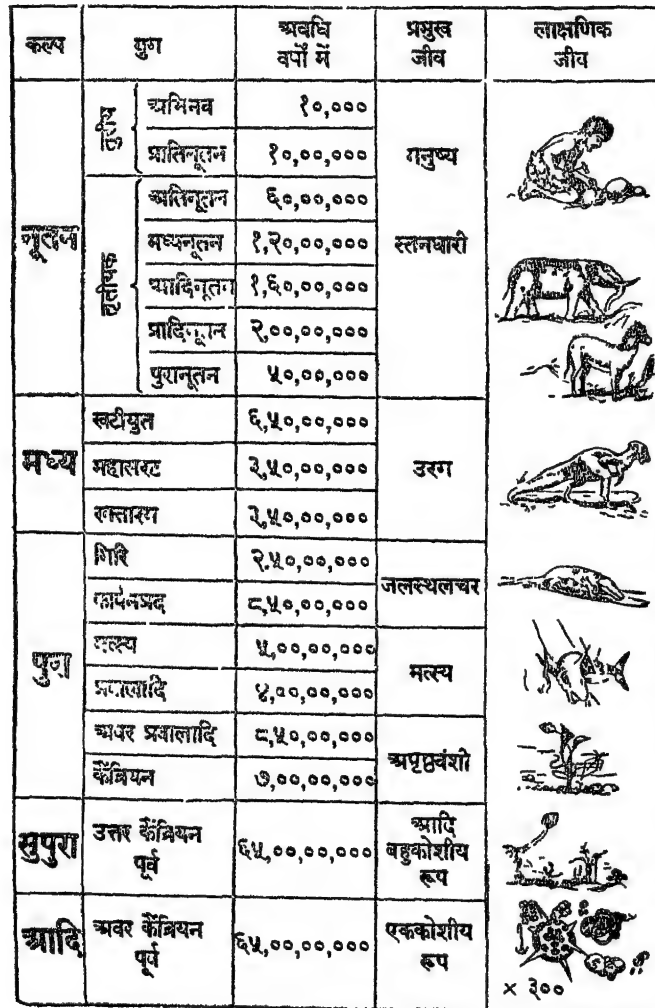 कल्प युग अवधि वर्षों में प्रमुख जीव लाक्षणिक जीव
नूतन
अभिनव १०,०००
प्रातिनूतन १०,००,०००
मनुष्य
तृतीयक
अतिनूतन ६०,००,०००
मध्यनूतन १,२०,००,०००
स्तनधारी
आदिनूतन १,६०,००,०००
प्रादिनूतन २,००,००,०००
पुरानूतन ५०,००,०००
मध्य
खटीयुत ६,५०,००,०००
महासरट ३,५०,००,०००
उरग
रक्ताश्म ३,५०,००,०००
पुरा
गिरि २,५०,००,०००
कार्बनप्रद ८,५०,००,०००
जलस्थलचर
मत्स्य ५,००,००,०००
प्रवालादि ४,००,००,०००
मत्स्य
अवर प्रवालादि ८,५०,००,०००
कैंब्रियन ७,००,००,०००
अपृष्ठवंशी
सुपुरा
उत्तर कैंब्रियन
पूर्व
६५,००,००,०००
आदि
बहुकोशीय
रूप
आदि
अवर कैंब्रियन
पूर्व
६५,००,००,०००
एककोशीय
रूप
× ३००